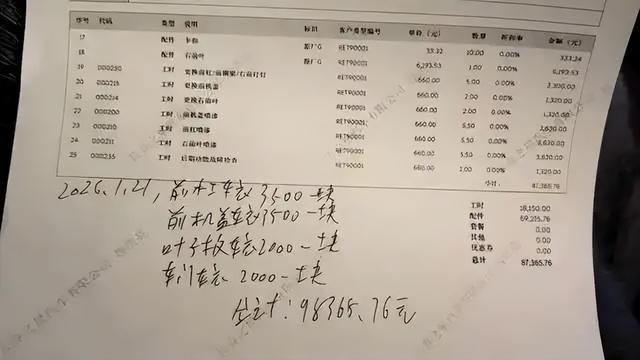 序号 代码 类型 说明 标识 客户类型编号 单价（元） 数量 折扣率 金额（元）
17 配件 卡扣 原厂G RET90001 33.32 10.00 0.00% 333.24
18 配件 右前叶 原厂G RET90001 6,293.53 1.00 0.00% 6,293.53
19 000230 工时 更换前杠/前钢梁/右前灯灯 RET90001 660.00 5.00 0.00% 3,300.00
20 000215 工时 更换前机盖 RET90001 660.00 2.00 0.00% 1,320.00
21 000214 工时 更换右前叶 RET90001 660.00 2.00 0.00% 1,320.00
22 000200 工时 前机盖喷漆 RET90001 660.00 5.50 0.00% 3,630.00
23 000210 工时 前杠喷漆 RET90001 660.00 5.50 0.00% 3,630.00
24 000211 工时 右前叶喷漆 RET90001 660.00 5.50 0.00% 3,630.00
25 000235 工时 后期功能及障检查 RET90001 660.00 2.00 0.00% 1,320.00
小计： 87,365.76
工时 18,150.00
配件 69,215.76
套餐 0.00
其他 0.00
优惠券 0.00
总计 87,365.76
2026.1.21，前杠车衣3500一块
前机盖车衣3500一块
叶子板车衣2000一块
车门车衣 2000一块
合计：98365.76元